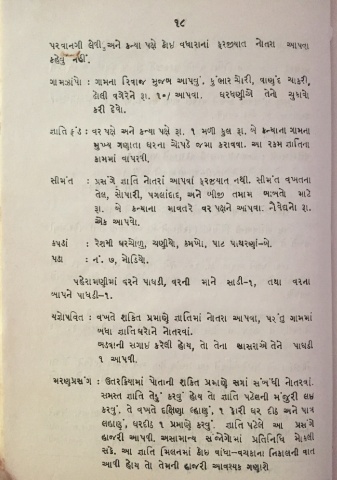 ૧૮
પરવાનગી હોવી અને કન્યા પક્ષે કોઇ વધારાનાં ફરજીયાત નોતરા આપવા
કહેવું નહીં.
ગામઝાંપો : ગામના રિવાજ મુજબ આપવું. કુંભાર ચોરી, વાણંદ ચાકરી,
ઢોલી વગેરેને રૂા. ૧૦/ આપવા. ઘરધણીએ તેનો ચુકાવો
કરી દેવો.
જ્ઞાતિ ફંડ : વર પક્ષે અને કન્યા પક્ષે રૂા. ૧ મળી કુલ રૂા. બે કન્યાના ગામના
મુખ્ય ગણાતા ઘરના ચોપડે જમા કરાવવા. આ રકમ જ્ઞાતિના
કામમાં વાપરવી.
સીમંત : પ્રસંગે જ્ઞાતિ નોતરાં આપવાં ફરજીયાત નથી. સીમંત વખતના
તેલ, સોપારી, પગલાંદાદ, અને બીજી તમામ બાબતો માટે
રૂા. બે કન્યાના માવતરે વર પક્ષને આપવા. નૈવેદ્યનો રૂા.
એક આપવો.
કપડાં : રેશમી ઘરચોળુ, ચણીયો, કમખો, પાટ પાથરણાં-બે.
પડા : નં. ૭, મોડિયો.
પહેરામણીમાં વરને પાઘડી, વરની માને સાડી-૧, તથા વરના
બાપને પાઘડી-૧.
યજ્ઞોપવિત : વખતે શક્તિ પ્રમાણે જ્ઞાતિમાં નોતરા આપવા, પરંતુ ગામમાં
બધા જ્ઞાતિ ઘરોને નોતરવાં.
બડવાની સગાઇ કરેલી હોય, તો તેના સાસરાએ તેને પાઘડી
૧ આપવી.
મરણપ્રસંગ : ઉત્તરક્રિયામાં પોતાની શક્તિ પ્રમાણે સગાં સંબંધી નોતરવાં.
સમસ્ત જ્ઞાતિ તેડું કરવું હોય તો જ્ઞાતિ પટેલની મંજુરી લઇ
કરવું. તે વખતે દક્ષિણા લ્હાણું, ૧ કોરી ઘર દીઠ અને પાત્ર
લ્હાણું, ઘરદીઠ ૧ પ્રમાણે કરવું. જ્ઞાતિ પટેલે આ પ્રસંગે
હાજરી આપવી. અસામાન્ય સંજોગોમાં પ્રતિનિધિ મોકલી
શકે. આ જ્ઞાતિ મિલનમાં કોઇ વાંધા-વચકાના નિકાલની વાત
આવી હોય તો તેમની હાજરી આવશ્યક ગણાશે.